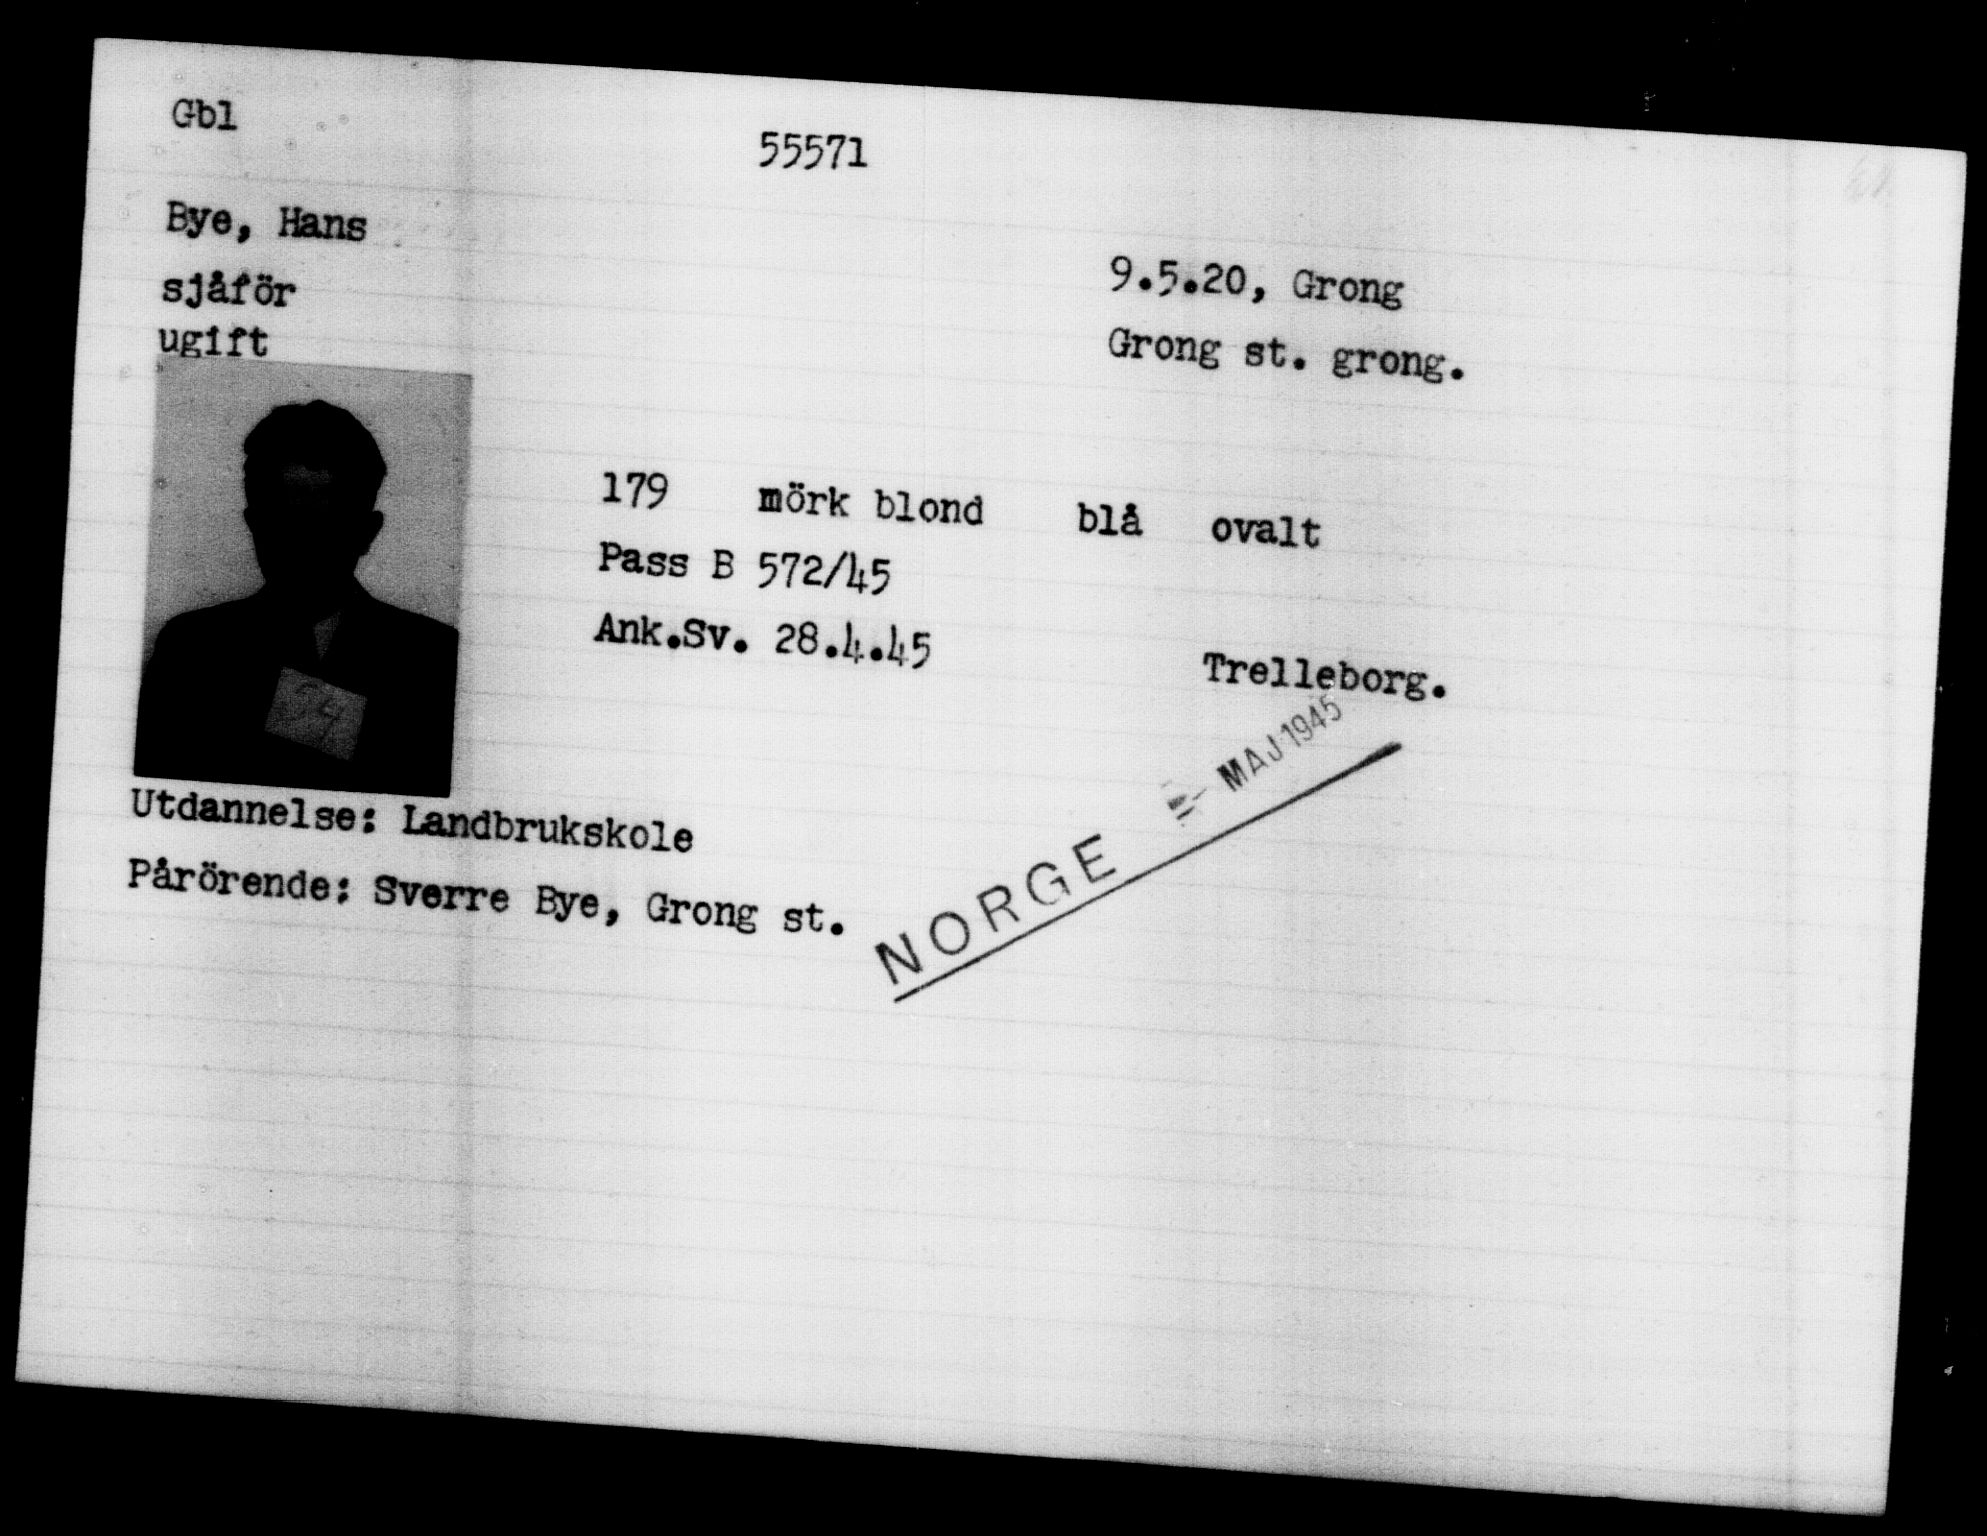 Gbl
55571
Bye, Hans
9.5.20, Grong
sjåför
Grong st. grong.
ugift
179 mörk blond blå ovalt
Pass B 572/45
Ank.Sv. 28.4.45 Trelleborg.
54
MAJ 1945
NORGE
Utdannelse: Landbrukskole
Pårörende: Sverre Bye, Grong st.